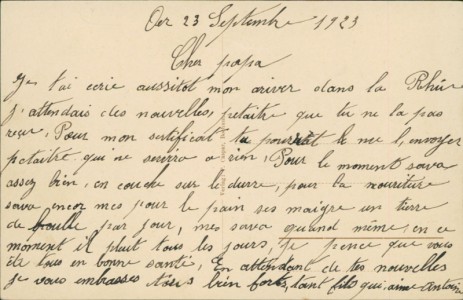 Oer 23 Septembre 1923
Cher papa
Je t'ai ecrie aussitot mon ariver dans la Rhûr
j'attendais des nouvelles, petaitre que tu ne la pas
reçue, Pour mon sertificat tu pourrat le me l'envoyer
petaitre qui ne serrra a rien, Pour le moment sava
assez bien, on couche sur le durre, pour la nouriture
sava, encor mes pour le pain ses maigre un tierre
de boulle par jour, mes sava quand même, en ce
moment il pluit tous les jours, je pence que vous
éte tous en bonne santé, En attendant de tes nouvelles
je vous embrasses tous bien fort, ton fils qui aime Antoine